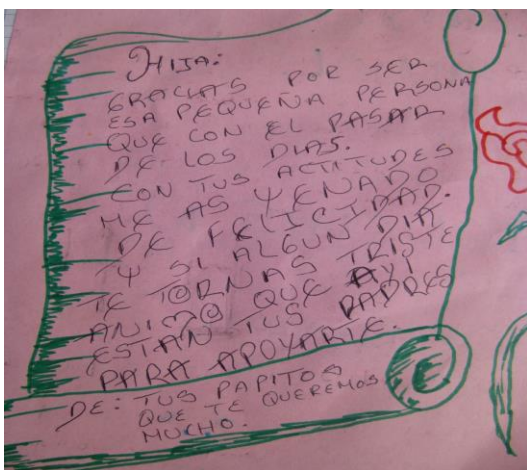 HIJA:
GRACIAS POR SER
ESA PEQUEÑA PERSONA
QUE CON EL PASAR
DE LOS DIAS.
CON TUS ACTITUDES
ME AS YENADO
DE FELICIDAD.
Y SI ALGUN DIA
TE TORNAS TRISTE
ANIMO QUE AYI
ESTAN TUS PADRES
PARA APOYARTE.
DE: TUS PAPITOS
QUE TE QUEREMOS
MUCHO.